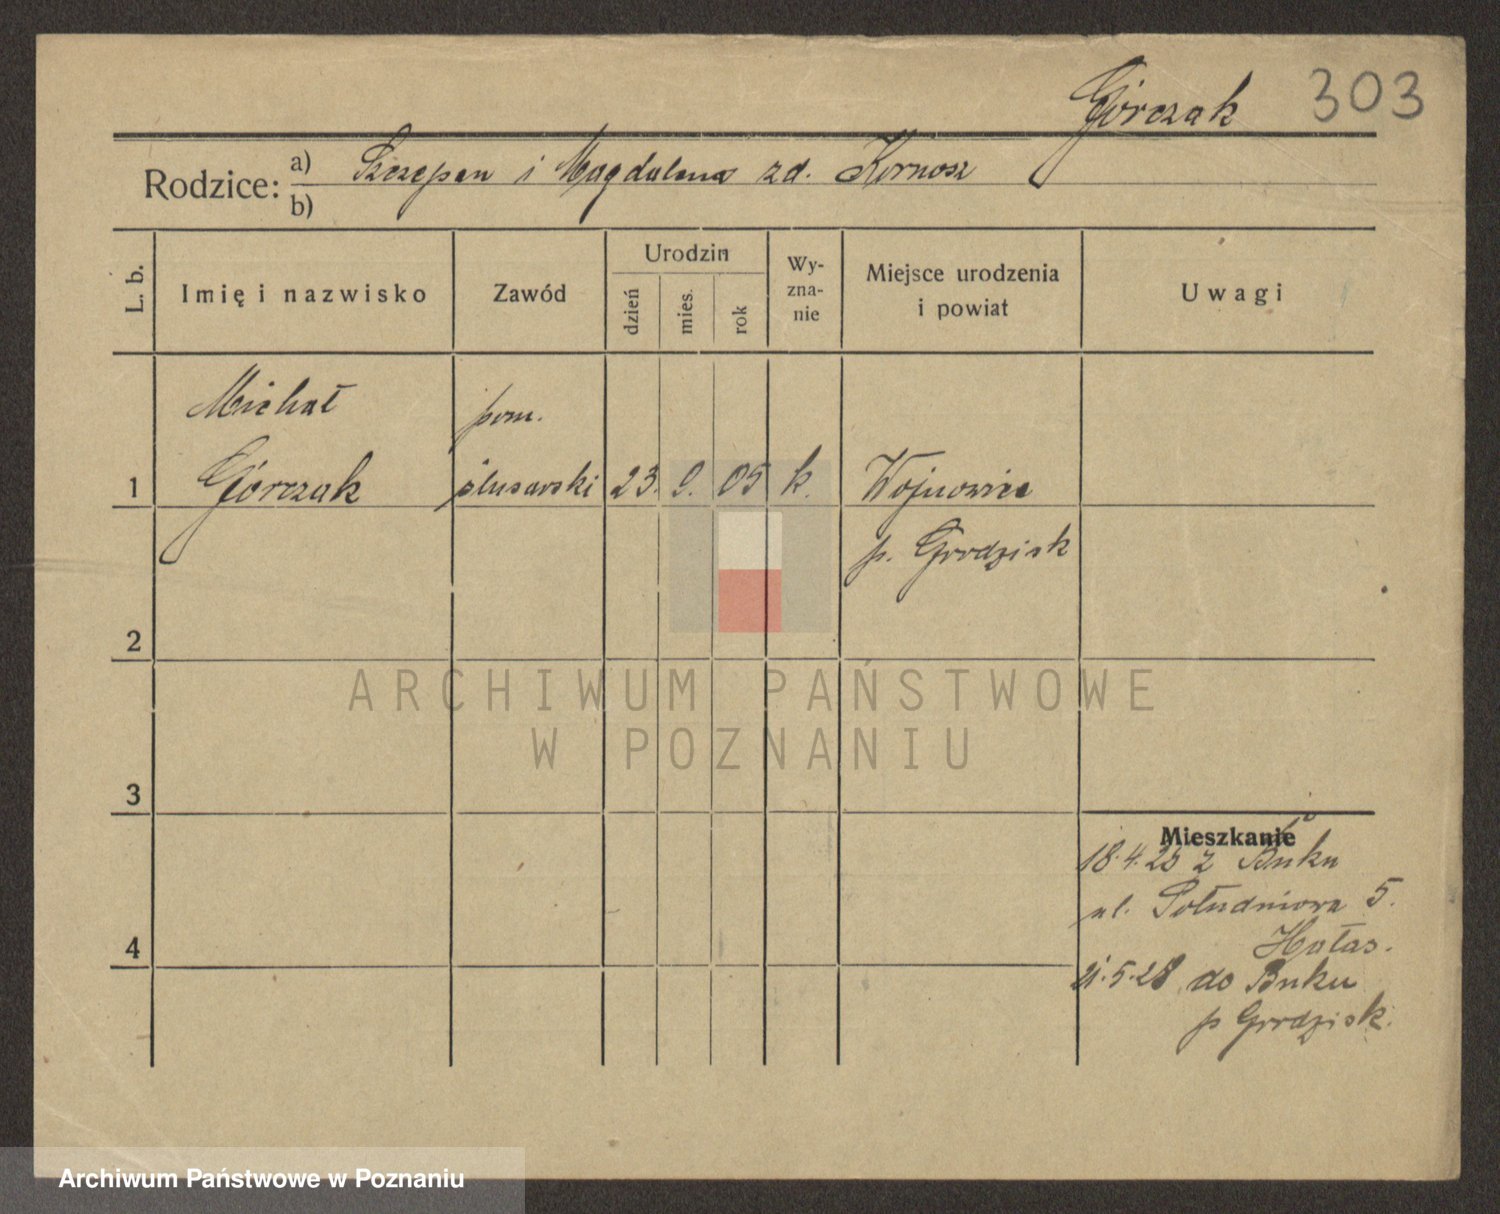 Górczak 303
Rodzice: a) Szczepan i Magdalena zd. Kornosz
b)
L. b. Imię i nazwisko Zawód Urodzin dzień mies. rok Wyznanie Miejsce urodzenia i powiat Uwagi
Michał pom.
1 Górczak ślusarski 23. 9. 05 k. Wojnowice
p. Grodzisk
2
ARCHIWUM PAŃSTWOWE
W POZNANIU
3
Mieszkanie
18.4.25 z Buku
ul. Południowa 5.
Hałas.
4
21.5.28 do Buku
p Grodzisk.
Archiwum Państwowe w Poznaniu